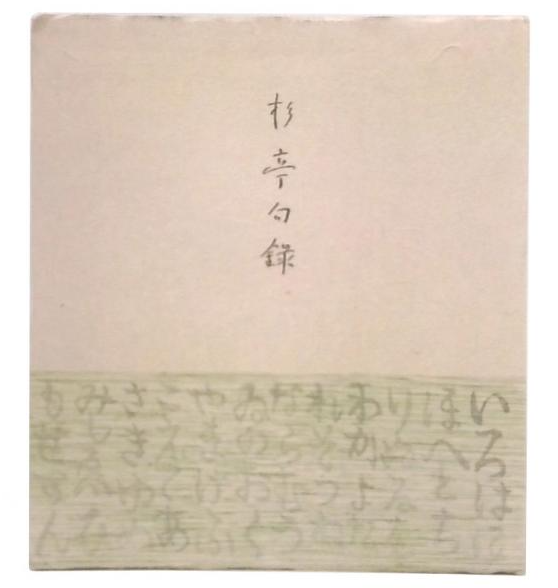 杉亭句録
いろはに
ほへとち
りぬるを
わかよた
れそつね
ならむう
ゐのおく
やまけふ
こえてあ
さきゆめ
みしゑひ
もせすん